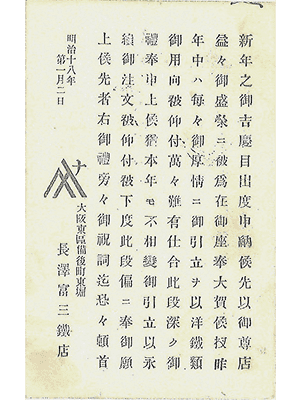 新年之御吉慶目出度申納候先以御尊店
益々御盛榮ニ被為在御座奉大賀候扨昨
年中ハ毎々御厚情ニ御引立ヲ以洋鐵類
御用向被仰付萬々難有仕合此段深ク御
禮奉申上候猶本年モ不相變御引立以永
續御注文被仰付被下度此段偏ニ奉御願
上候先者右御禮旁々御祝詞迄恐々頓首
明治十八年
第一月二日
大阪東區備後町東堀
長澤富三鐵店